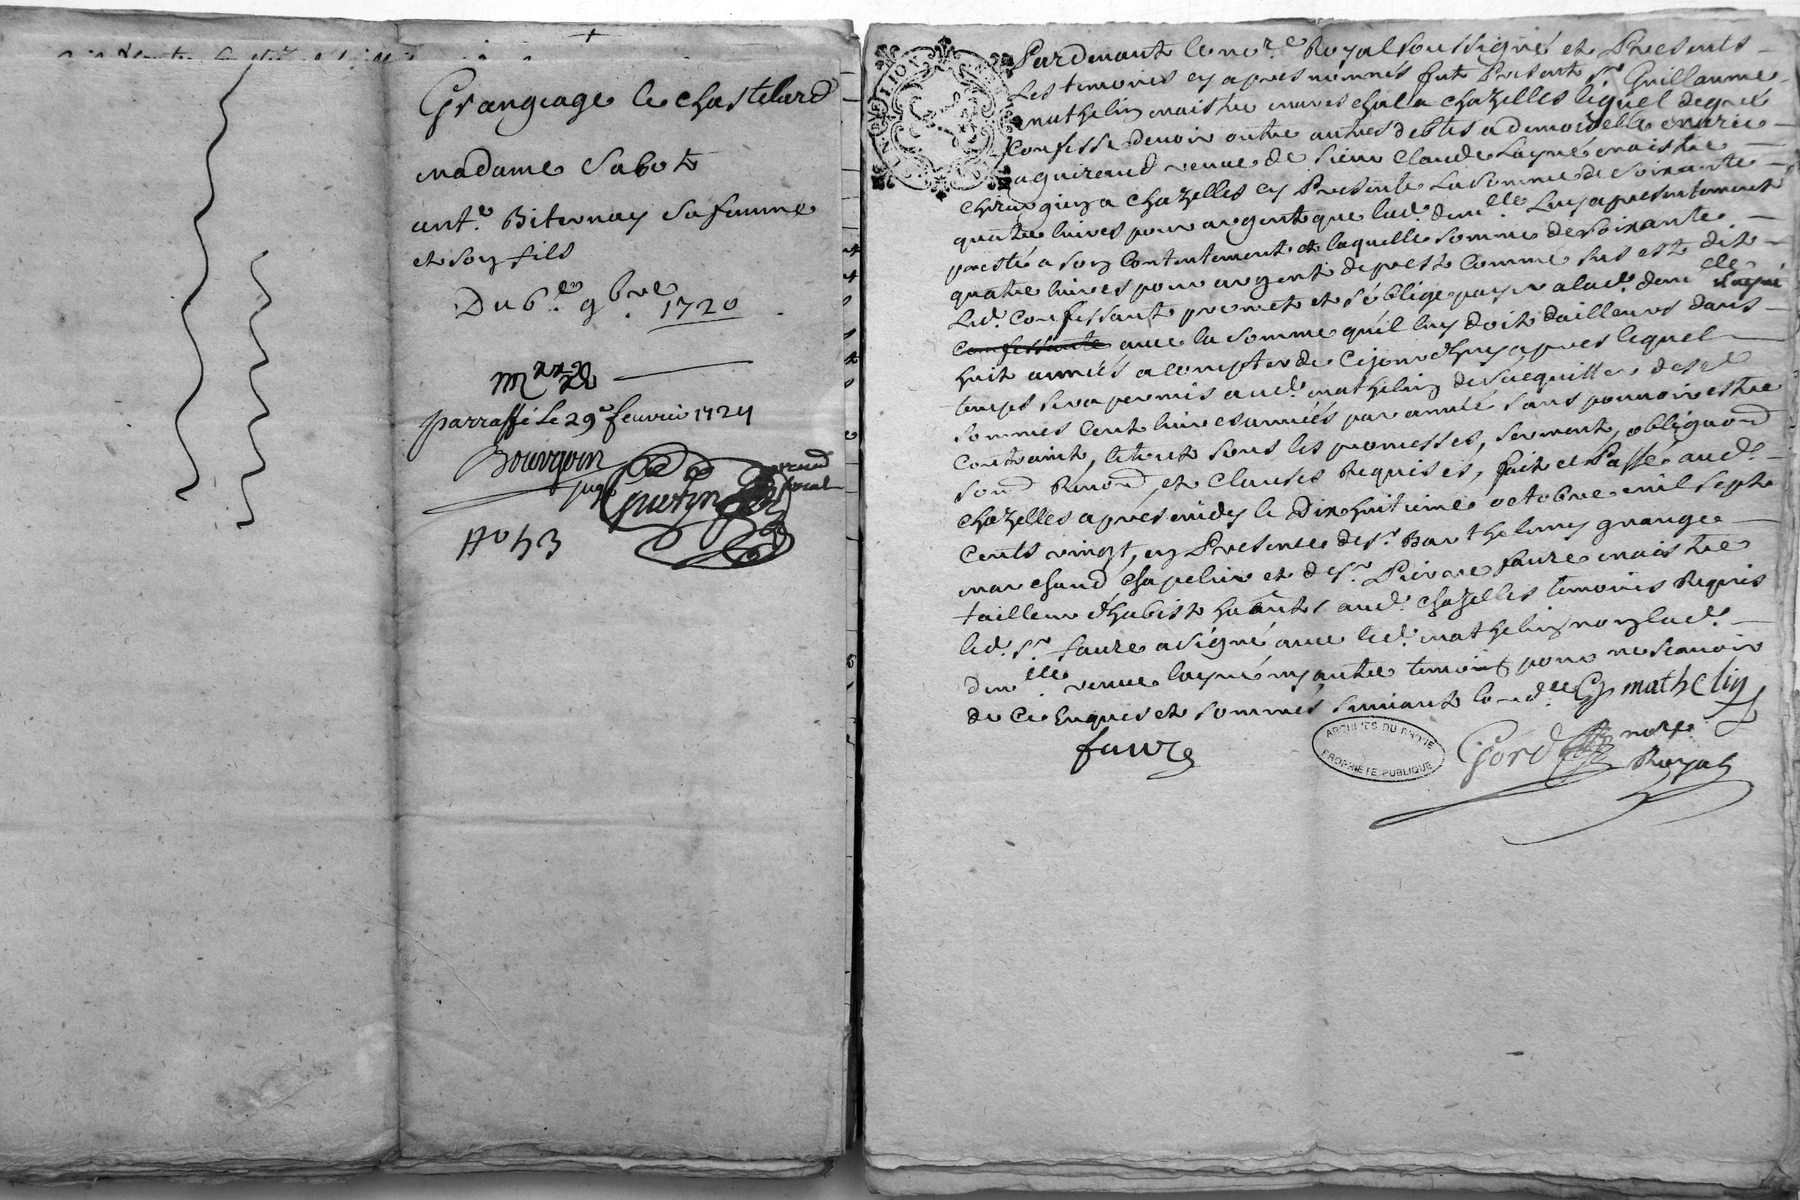 Grangeage le chastelard
madame Sabot
ant.e Biternay sa femme
et son fils
Du 6.e 9bre 1720
parraffé le 29e fevrier 1724
Bourgoin
juge
No 53
Pardevant le nore Royal soussigné et Presents
Les temoins cy apres nommés fut Present sr Guillaume
mathelin maistre mareschal a chazelles lequel de gré
Confesse devoir outre autres debtes a demoiselle marie
aguiraud veuve de sieur Claude Layné maistre
chirurgien a chazelles cy Presente La somme de soixante
quatre livres pour argent que lad. demlle Luy a presentement
presté a son Contentement et laquelle somme de soixante
quatre livres pour argent de prest Comme sus est dit
Led. Confessant promet et s'oblige payer a lad. demlle Layné
Confessante avec la somme qu'il luy doit dailleurs dans
huit années a compter de ce jourdhuy apres lequel
temps sera permis aud. mathelin de s'acquitter desd
sommes Cent livres années par année sans pouvoir estre
Contraint, le tout sous les promesses, serment, obligaond
soud Renond, et Clauses Requises, fait et Passé aud.
chazelles apres midy le Dix huitieme octobre mil sept
Cents vingt, en Presence de sr. Barthelemy grange
marchand chapelier et de sr. Pierre faure maistre
tailleur d'habist habitants aud. chazelles temoins Requis
led. sr. faure a signé avec led. mathelin non lad.
demlle. veuve layné ny autre temoins pour ne scavoir
de Ce Enquis et sommés suivant lord.ce G mathelin
faure
ARCHIVES DU RHÔNE
PROPRIÉTÉ PUBLIQUE
nore
Royal